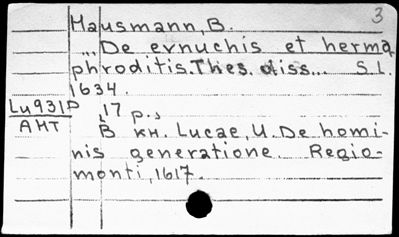 3
Hausmann, B.
... De evnuchis et herma
phroditis. Thes. diss... S.l.
1634.
Lu931p 17 p.,
АМТ В кн. Lucae, U. De homi-
nis generatione. Regio-
monti, 1617.